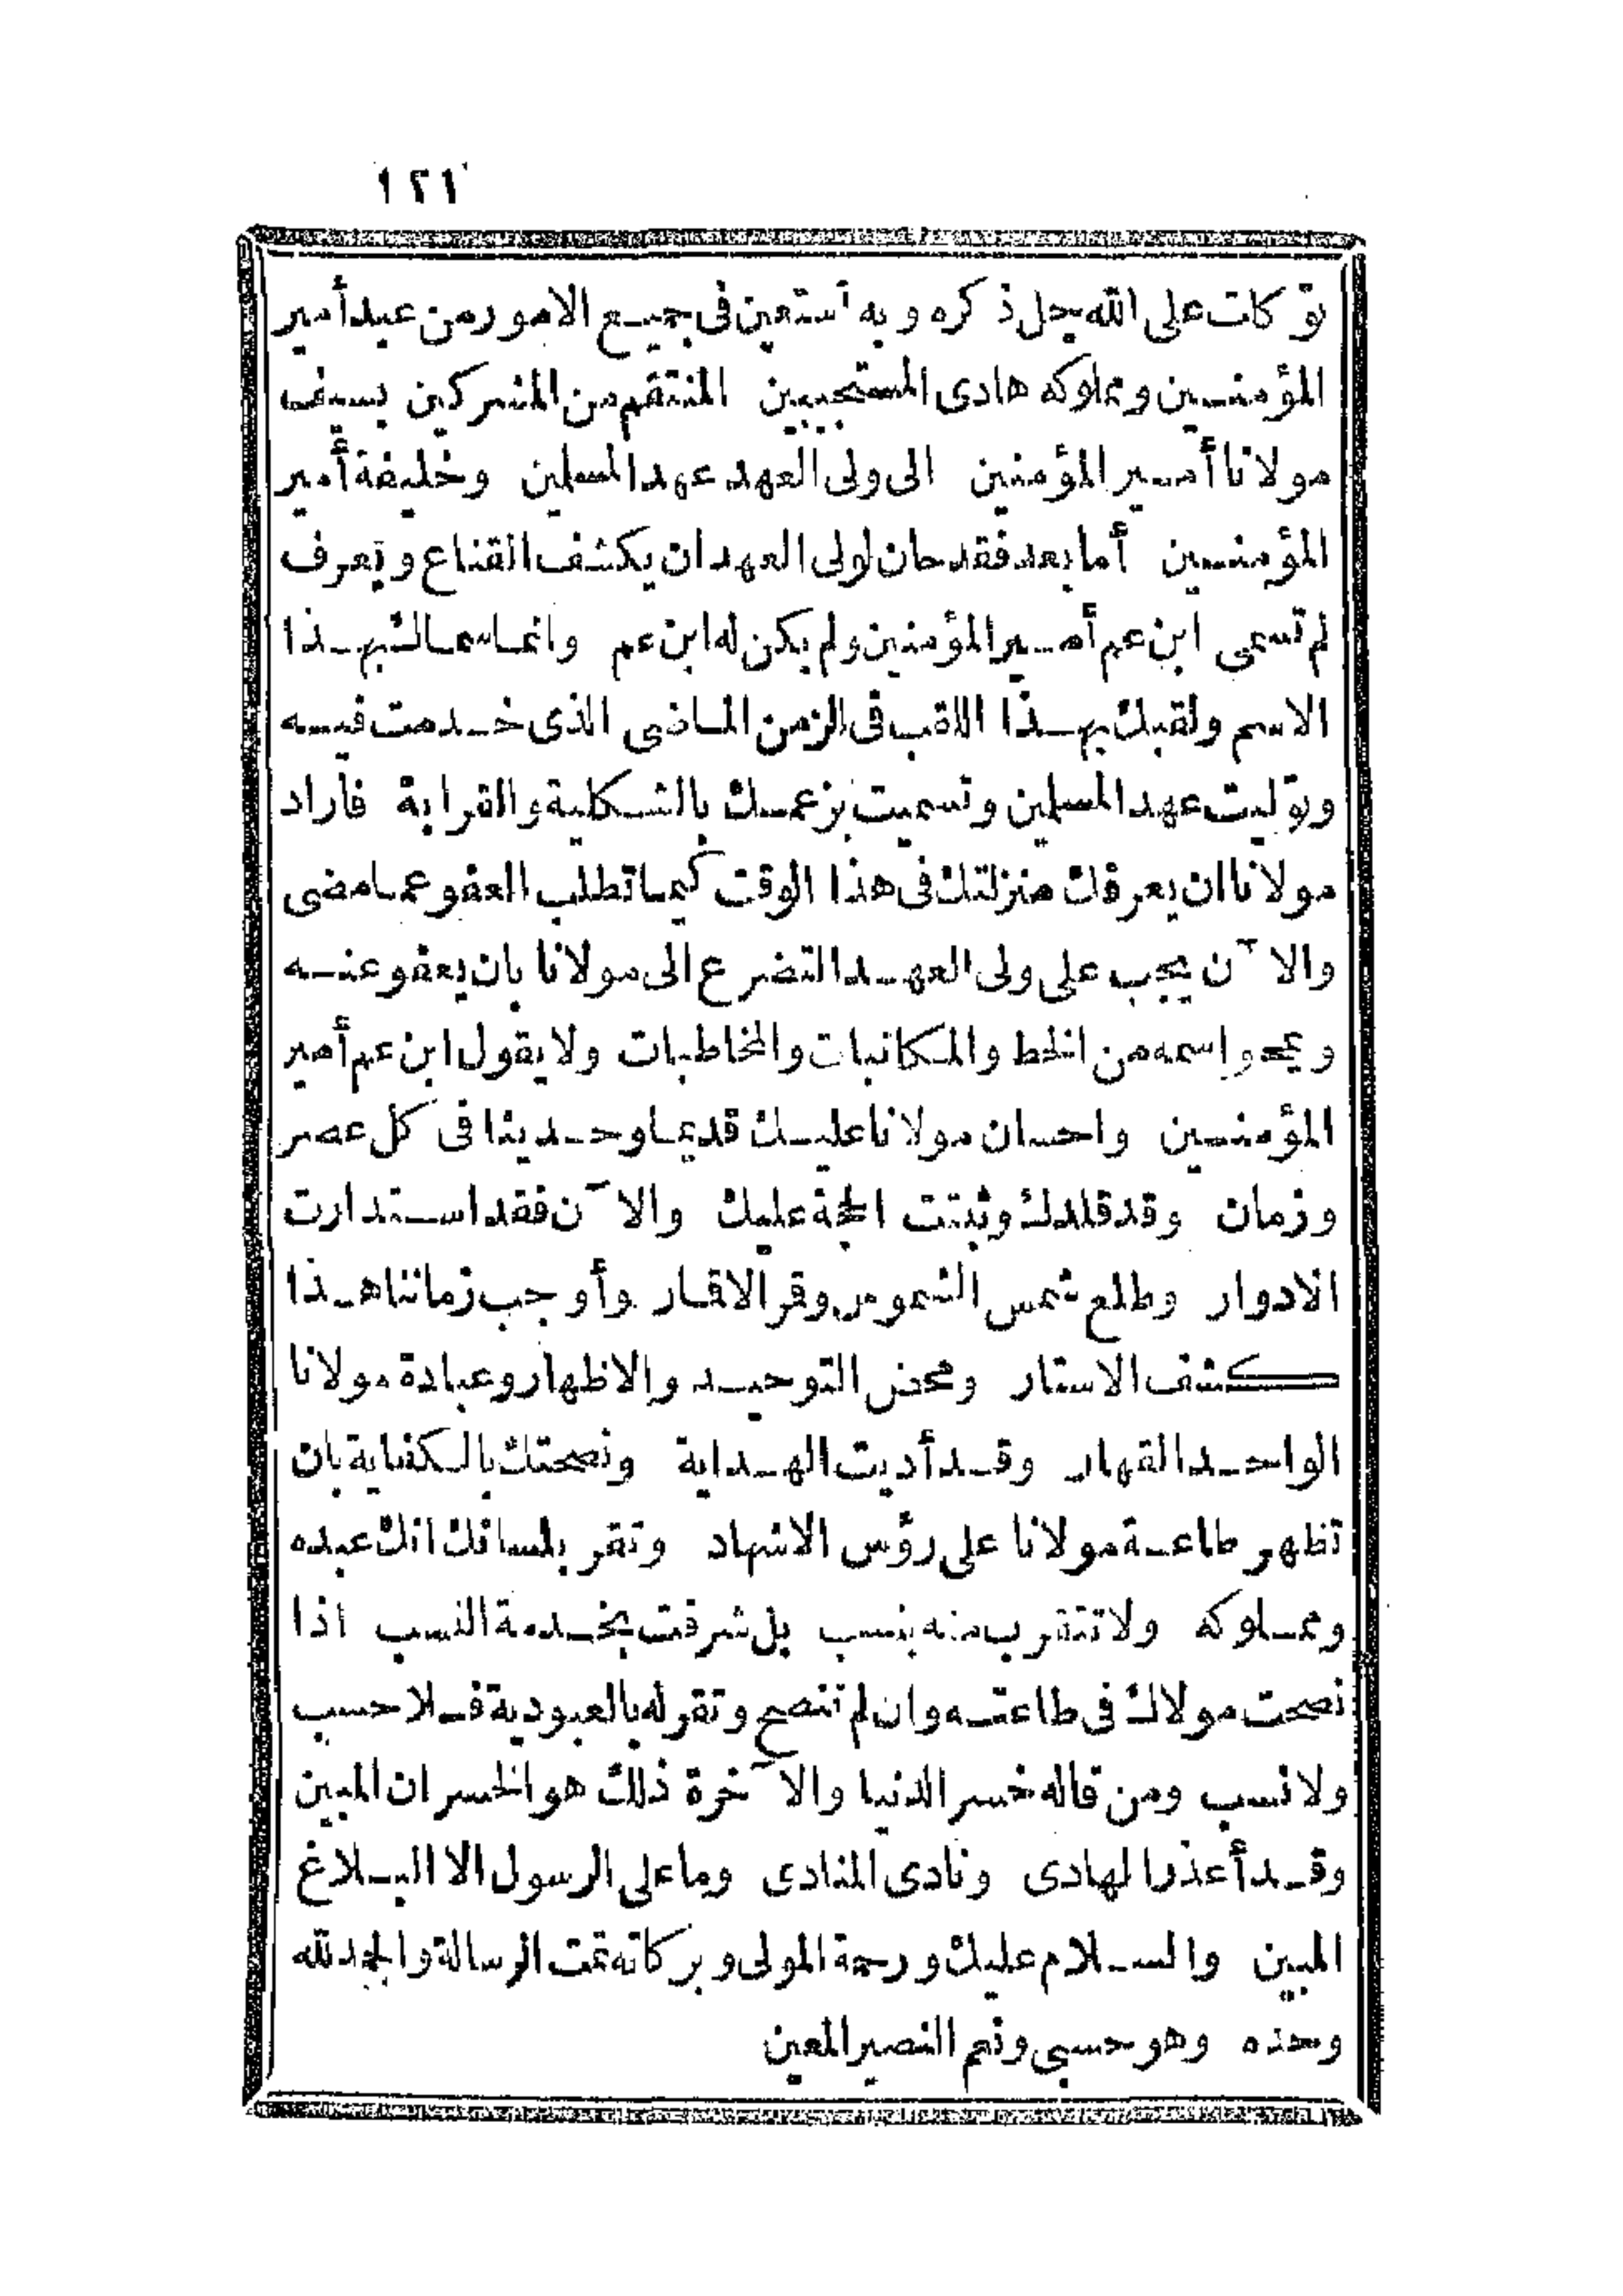 ١٢١
توكات على الله جل ذكره وبه أستعين فى جميع الامور من عبد أمير
المؤمنين ومملوكه هادى المستجيبين المنتقم من المشركين بسيف
مولانا أمير المؤمنين الى ولى العهد عهد المسلمين وخليفة أمير
المؤمنين أما بعد فقد حان لولى العهد ان يكشف القناع وتعرف
لم تسمى ابن عم أمير المؤمنين ولم يكن له ابن عم وانما سماك بهذا
الاسم ولقبك بهذا اللقب فى الزمن الماضى الذى خدمت فيه
وتوليت عهد المسلمين وتسميت بزعمك بالشكلية والقرابة فأراد
مولانا ان يعرفك منزلتك فى هذا الوقت كيما تطلب العفو عما مضى
والآن يجب على ولى العهد التضرع الى مولانا بان يعفو عنه
ويمحو اسمه من الخط والمكاتبات والمخاطبات ولا يقول ابن عم أمير
المؤمنين واحسان مولانا عليك قديما وحديثا فى كل عصر
وزمان وقد قلدك وثبتت الحجة عليك والآن فقد استدارت
الادوار وطلع شمس الشموس وقمر الاقمار وأوجب زماننا هذا
كشف الاستار ومحض التوحيد والاظهار وعبادة مولانا
الواحد القهار وقد أديت الهداية ونصحتك بالكفاية بان
تظهر طاعة مولانا على رؤس الاشهاد وتقر بلسانك انك عبده
ومملوكه ولا تتقرب منه بنسب بل شرفت بخدمة النسب اذا
نصحت مولاك فى طاعته وان لم تنصح وتقر له بالعبودية فلا حسب
ولا نسب ومن قاله خسر الدنيا والآخرة ذلك هو الخسران المبين
وقد أعذر الهادى ونادى المنادى وما على الرسول الا البلاغ
المبين والسلام عليك ورحمة المولى وبركاته تمت الرسالة والحمد لله
وحده وهو حسبى ونعم النصير المعين